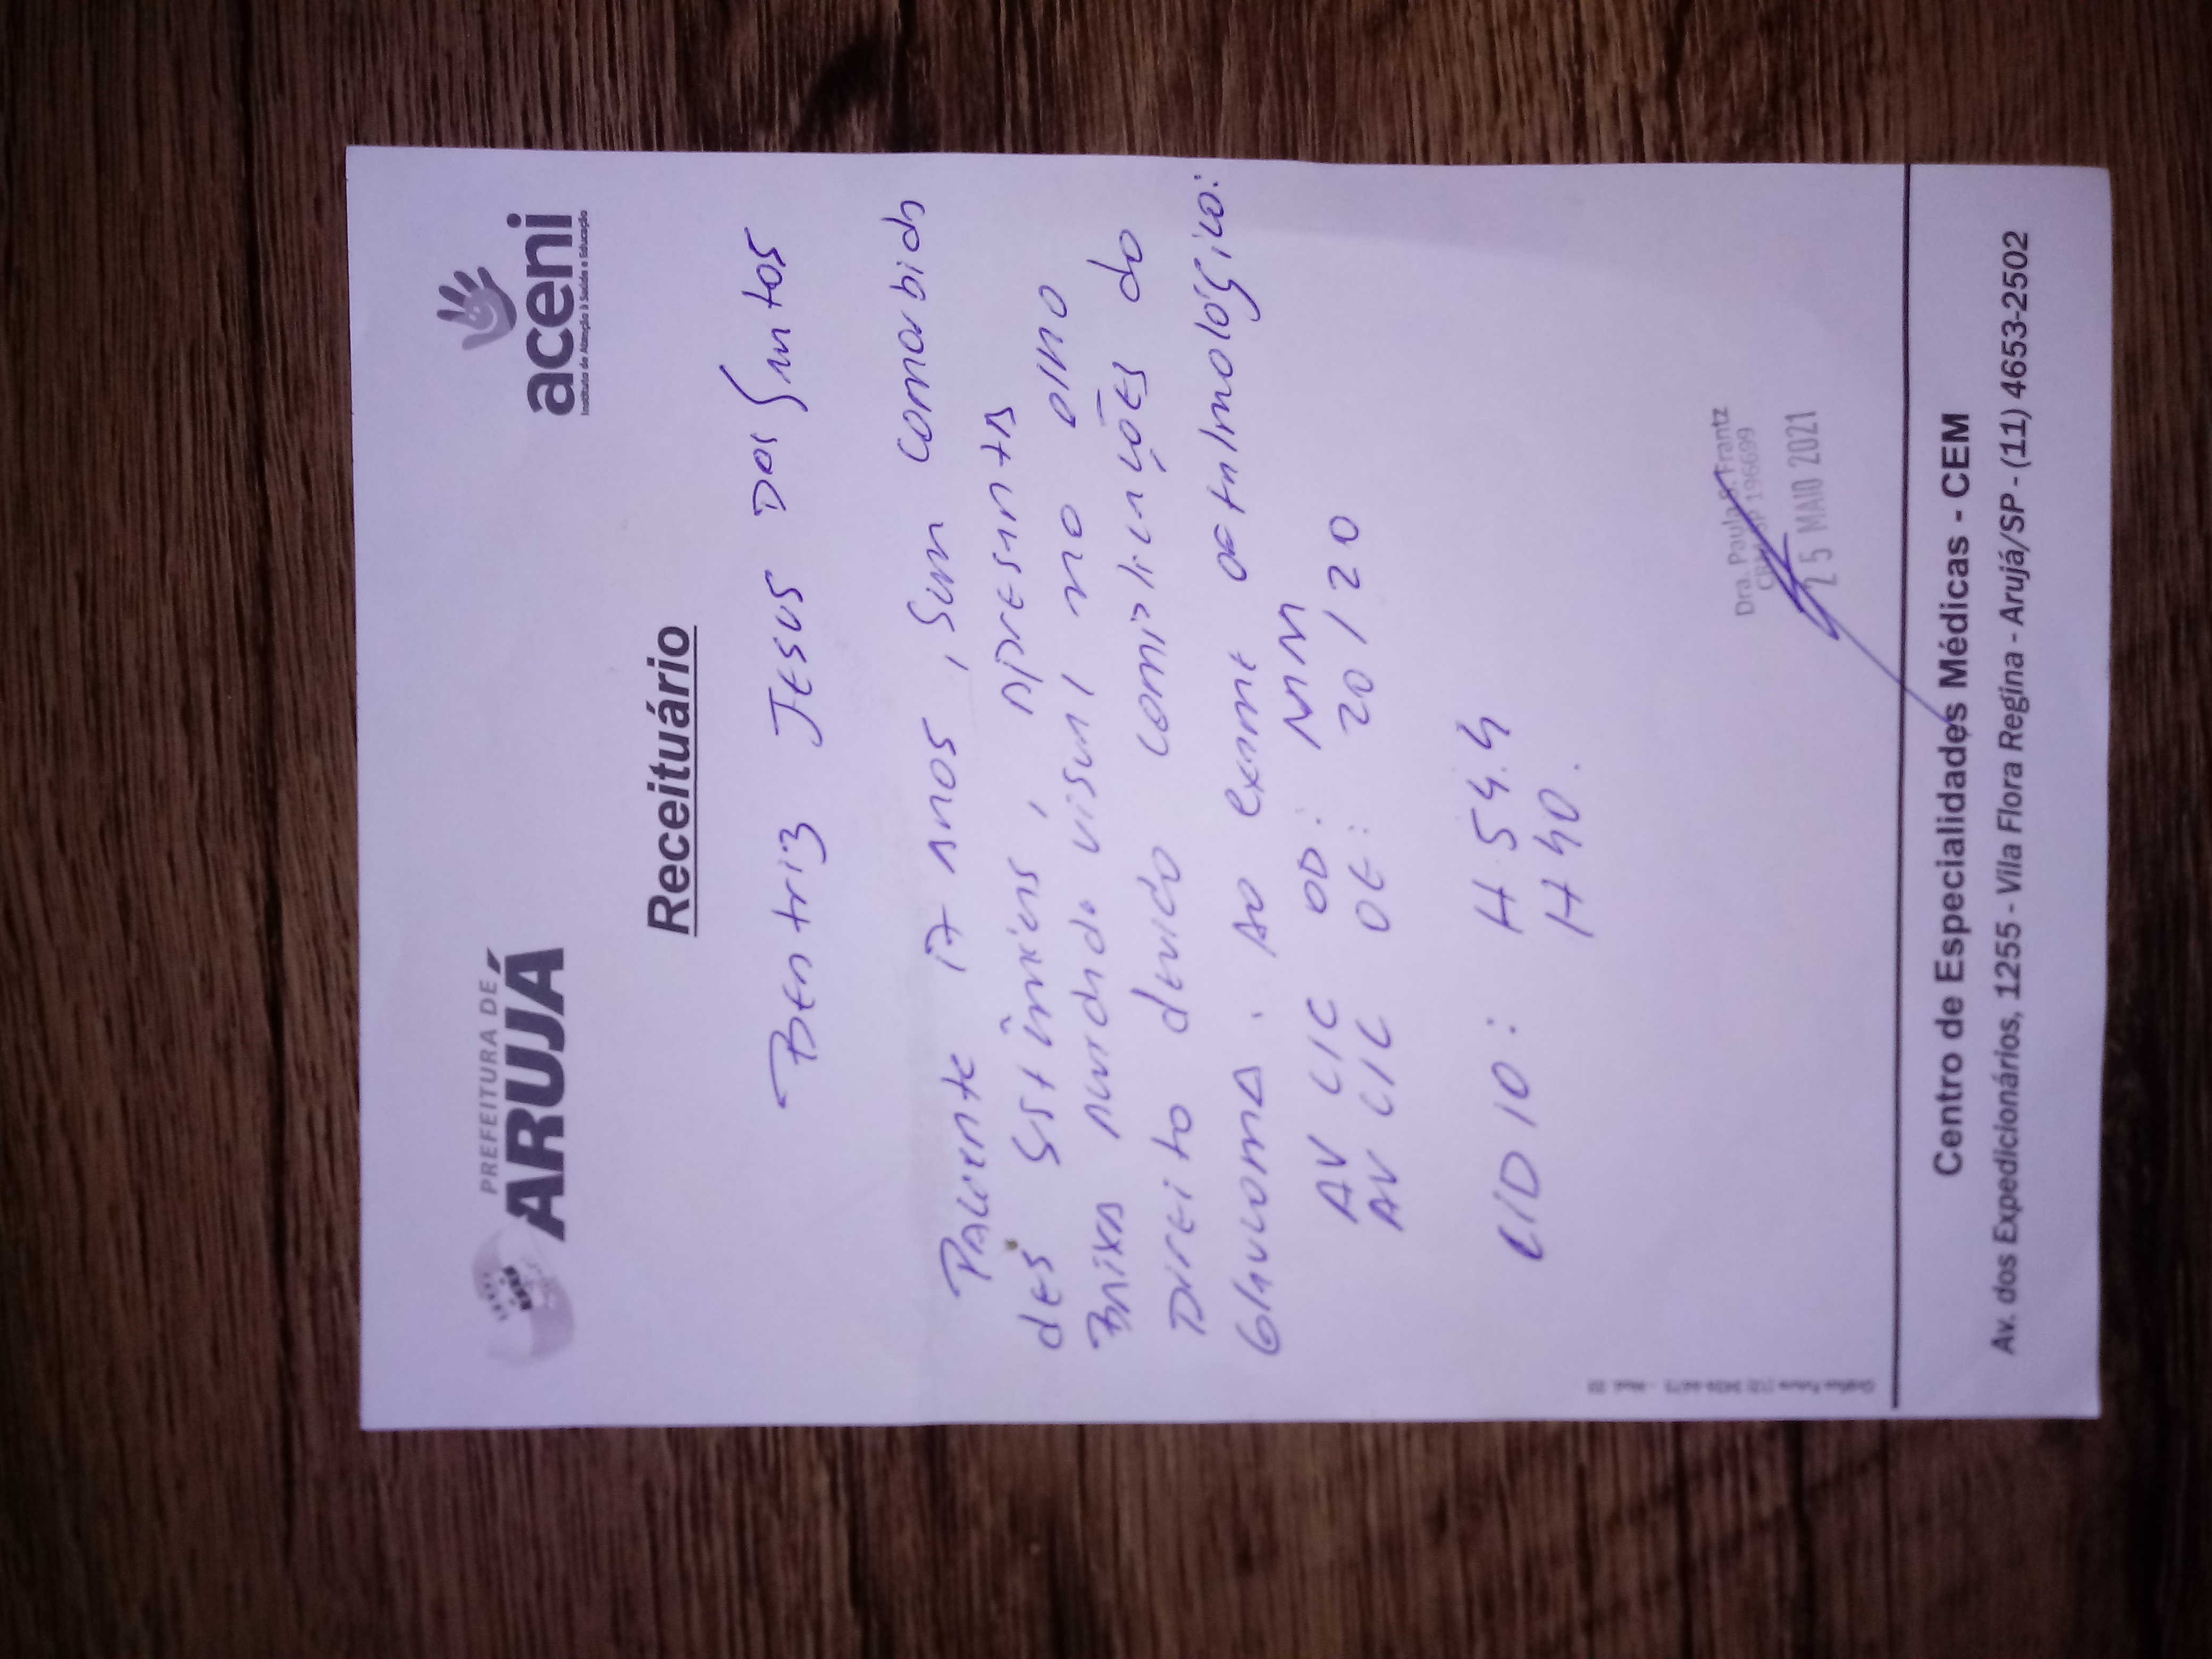 PREFEITURA DE
ARUJÁ
aceni
Instituto de Atenção à Saúde e Educação
Receituário
Beatriz Jesus dos Santos
Paciente 17 anos, sem comorbida
des sistêmicas, apresenta
Baixa acuidade visual no olho
Direito devido complicações do
Glaucoma. Ao exame oftalmológico:
AV C/C OD: MM
AV C/C OE: 20/20
CID 10: H 54.4
H 40.
Dra. Paula S. Frantz
CRM-SP 196699
25 MAIO 2021
Centro de Especialidades Médicas - CEM
Av. dos Expedicionários, 1255 - Vila Flora Regina - Arujá/SP - (11) 4653-2502